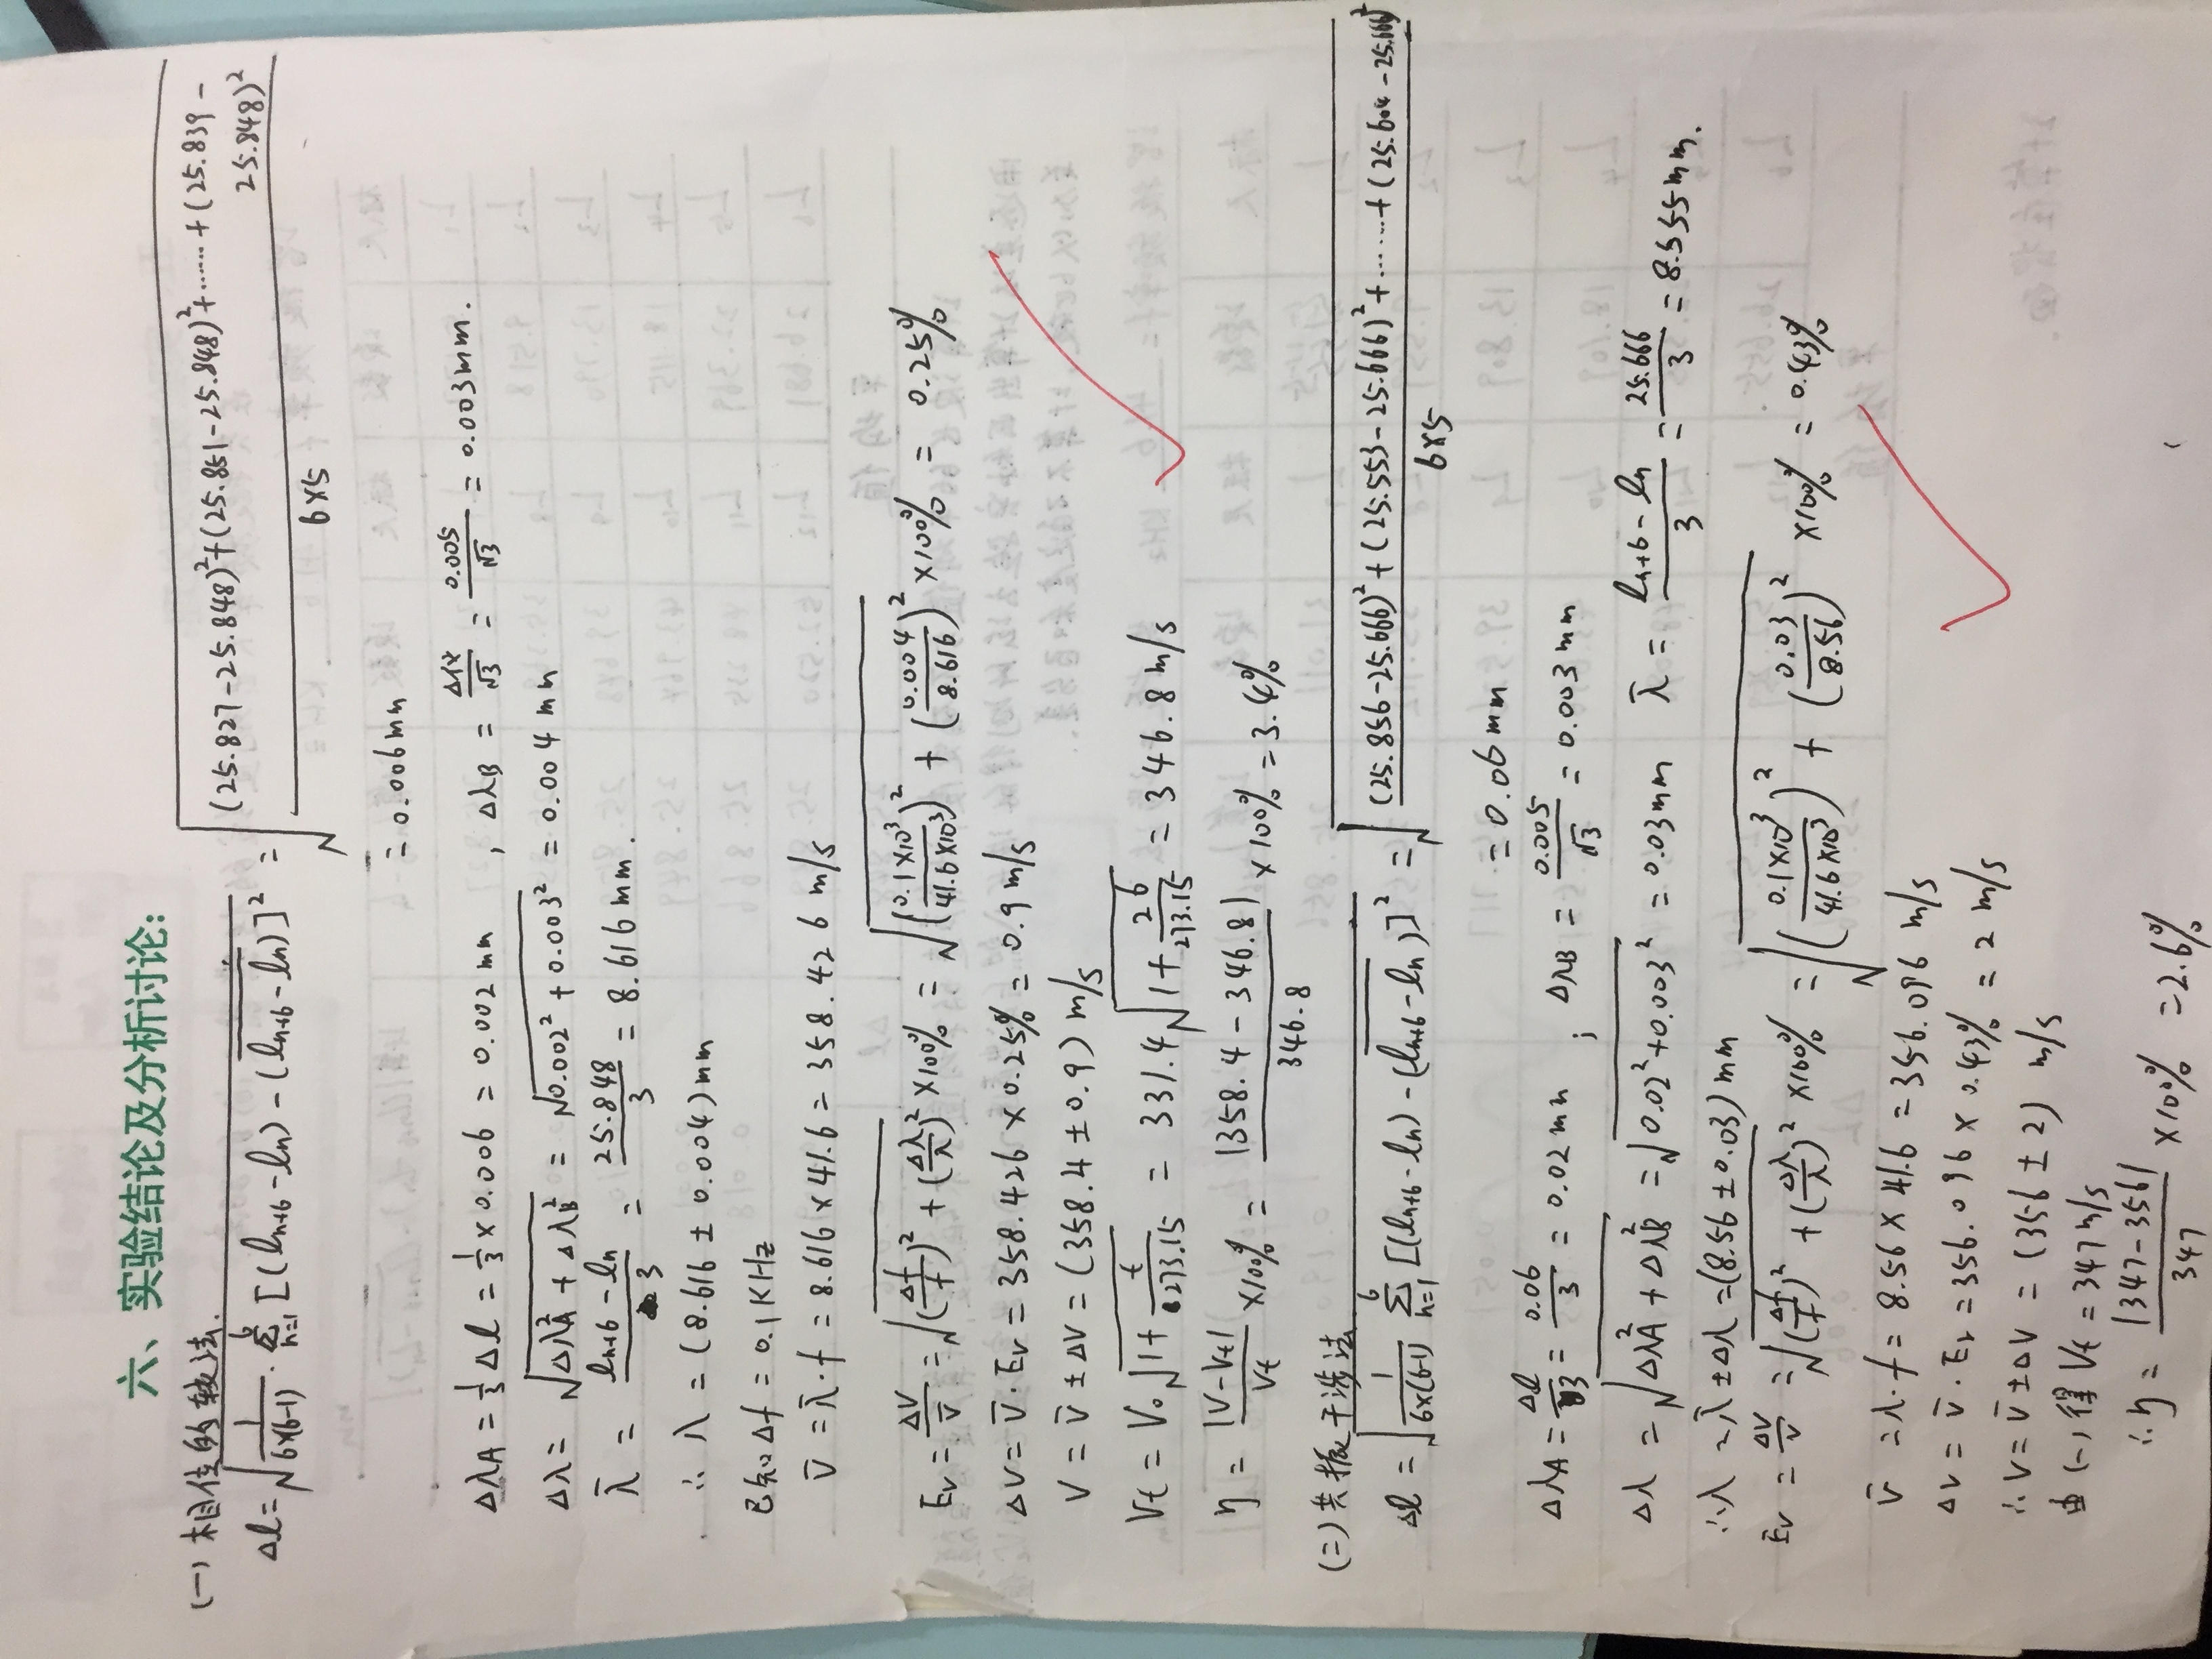 六、实验结论及分析讨论:
(一) 相位的较法.
Δl = √(1/(6×(6-1)) · Σ(n=1→6) [(ln+6 - ln) - (ln+6 - ln)‾]²) = √(((25.827-25.848)²+(25.851-25.848)²+……+(25.839-25.848)²)/(6×5))
= 0.006mm
ΔλA = 1/3 Δl = 1/3 × 0.006 = 0.002mm , ΔλB = Δ仪/√3 = 0.005/√3 = 0.003mm.
Δλ = √(ΔλA² + ΔλB²) = √(0.002² + 0.003²) = 0.004mm
λ̄ = (ln+6 - ln)/3 = 25.848/3 = 8.616mm.
∴ λ = (8.616 ± 0.004)mm
已知 Δf = 0.1KHz
V̄ = λ̄·f = 8.616 × 41.6 = 358.426 m/s
Ev = ΔV/V̄ = √((Δf/f)² + (Δλ/λ)²) ×100% = √((0.1×10³/41.6×10³)² + (0.004/8.616)²) ×100% = 0.25%
ΔV = V̄·Ev = 358.426 × 0.25% = 0.9m/s
V = V̄ ± ΔV = (358.4 ± 0.9) m/s
Vt = V₀√(1+t/273.15) = 331.4√(1+26/273.15) = 346.8m/s
η = |V-Vt|/Vt ×100% = |358.4-346.8|/346.8 ×100% = 3.4%
(二) 共振干涉法
Δl = √(1/(6×(6-1)) Σ(n=1→6) [(ln+6 - ln) - (ln+6 - ln)‾]²) = √(((25.856-25.666)²+(25.553-25.666)²+……+(25.604-25.666)²)/(6×5))
= 0.06mm
ΔλA = Δl/3 = 0.06/3 = 0.02mm ; ΔλB = 0.005/√3 = 0.003mm
Δλ = √(ΔλA² + ΔλB²) = √(0.02²+0.003²) = 0.03mm λ̄ = (ln+6 - ln)/3 = 25.666/3 = 8.555mm.
∴ λ = λ̄ ± Δλ = (8.56 ± 0.03)mm
Ev = ΔV/V̄ = √((Δf/f)² + (Δλ/λ)²) ×100% = √((0.1×10³/41.6×10³)² + (0.03/8.56)²) ×100% = 0.43%
V̄ = λ·f = 8.56 × 41.6 = 356.096 m/s
ΔV = V̄·Ev = 356.096 × 0.43% = 2 m/s
∴ V = V̄ ± ΔV = (356 ± 2) m/s
由(一)得 Vt = 347m/s
∴ η = |347-356|/347 ×100% = 2.6%